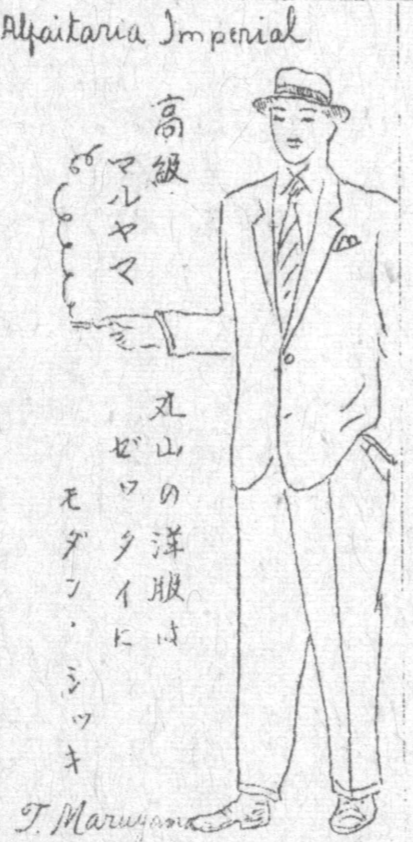 Alfaitaria Imperial
高級
マルヤマ
丸山の洋服は
ゼツタイに
モダン・シツキ
T. Maruyama